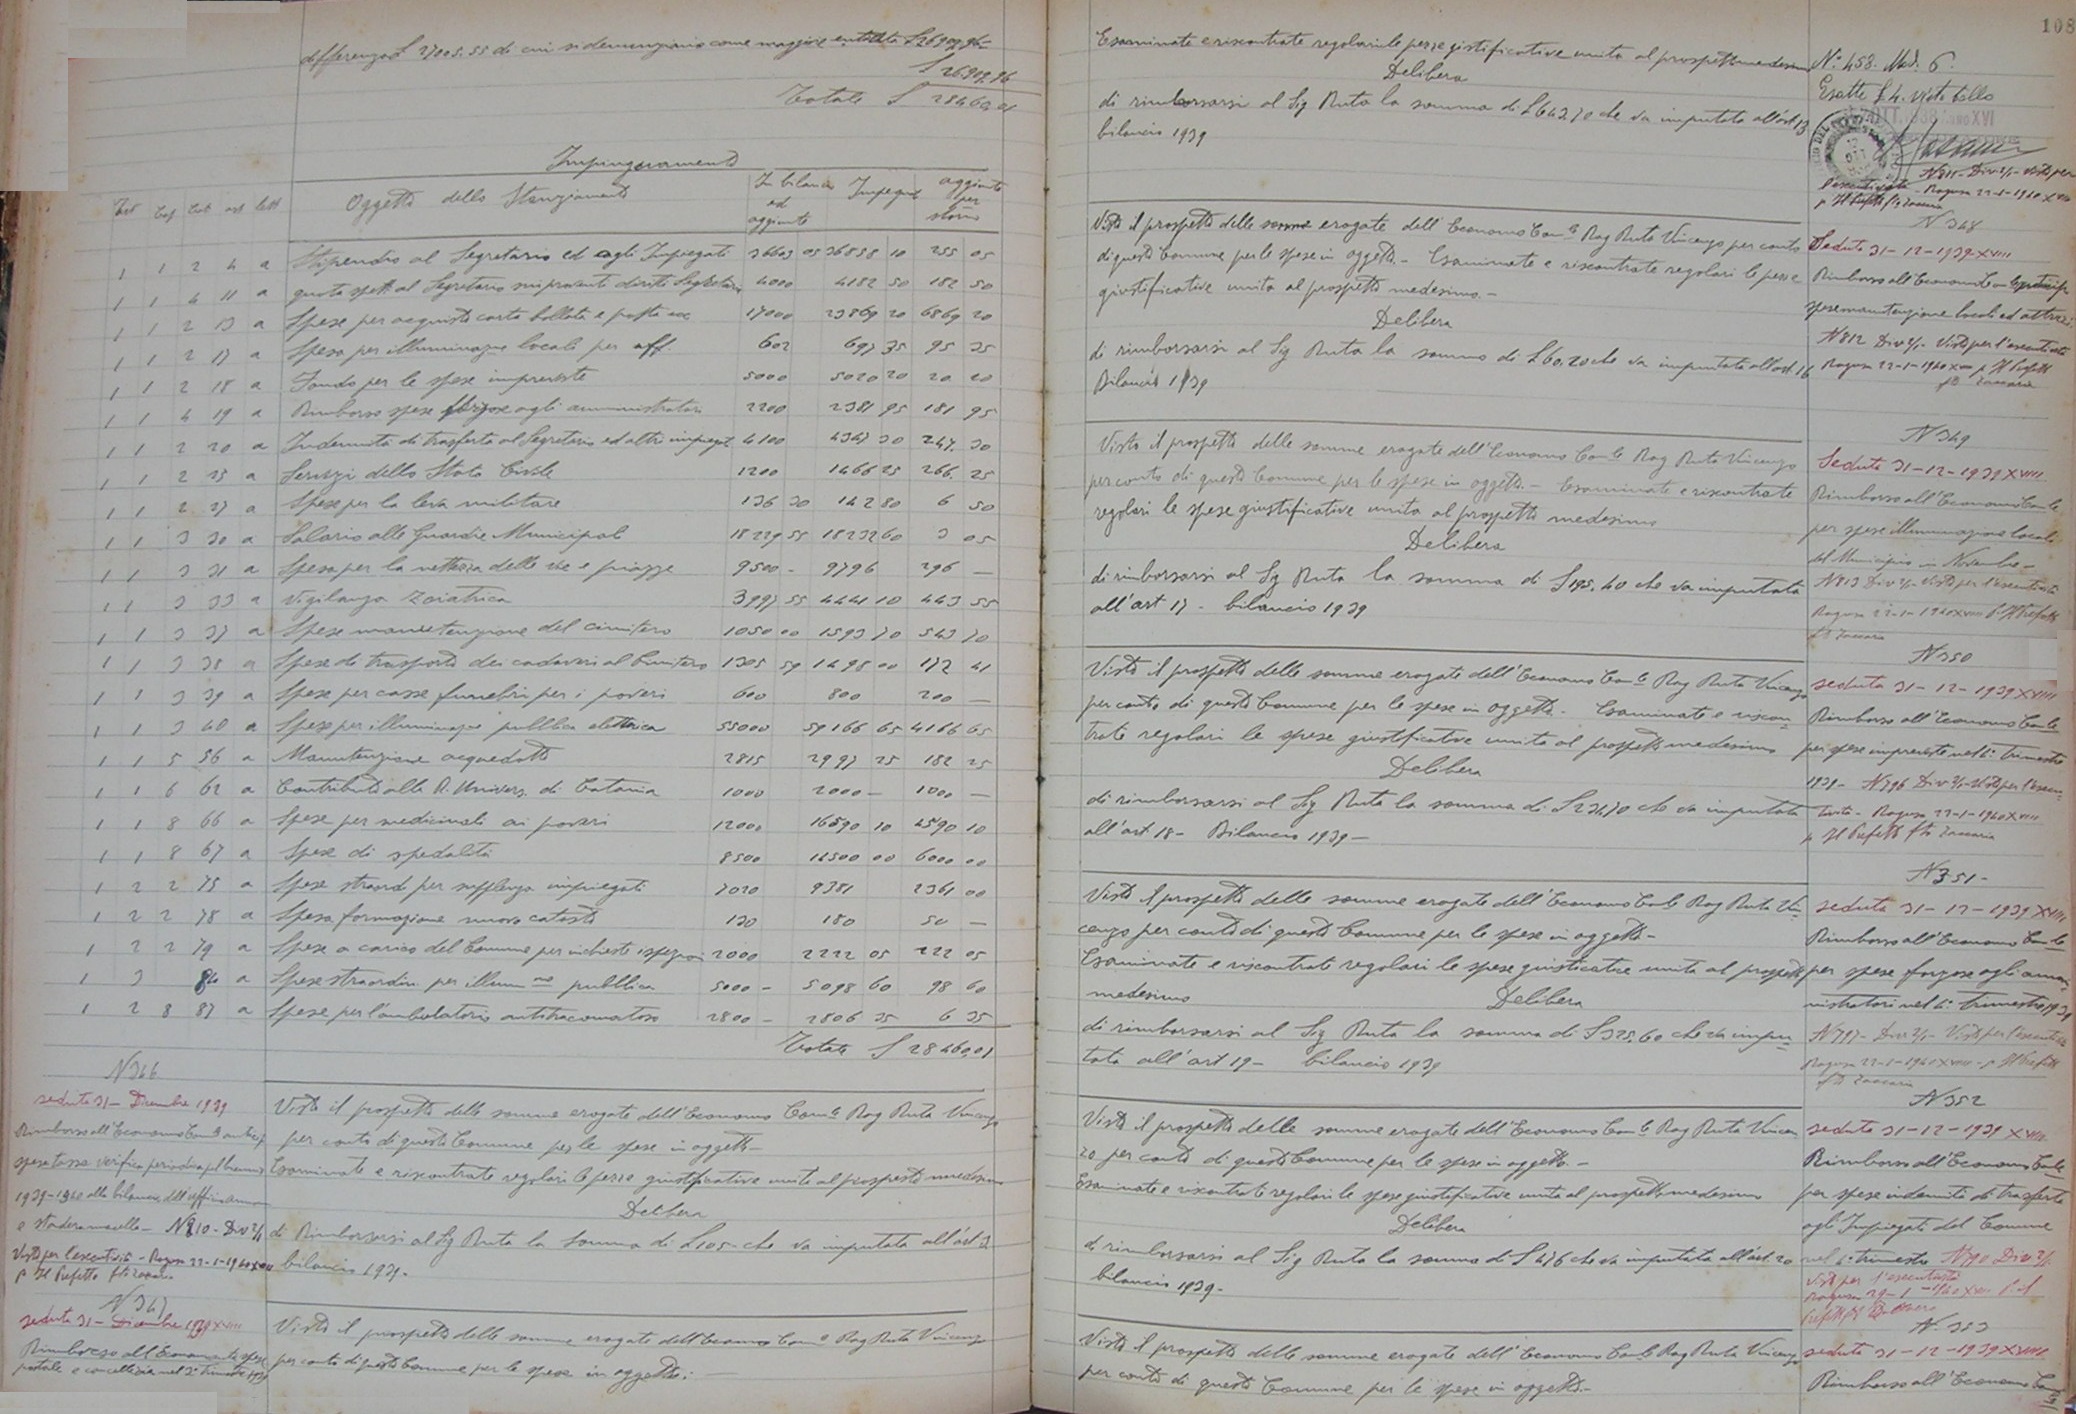 differenza £ 27005.55 da cui si denunziano come maggiore entrata £ 26909.96
£ 26.909.96
Totale £ 28460,01
Impinguamenti
Oggetto dello Stanziamento In bilancio ed aggiunte Impegni aggiunte per storno
1 1 2 4 a Stipendio al Segretario ed agli Impiegati 36603 05 36858 10 255 05
1 1 4 11 a quota spett. al Segretario sui proventi diritti Segreteria 4000 4182 50 182 50
1 1 2 13 a Spese per acquisto carta bollata e posta ecc 17000 23869 20 6869 20
1 1 2 17 a Spesa per illuminazione locali per uff. 602 697 35 95 35
1 1 2 18 a Fondo per le spese impreviste 5000 5020 20 20 20
1 1 4 19 a Rimborso spese forzose agli amministratori 2200 2381 95 181 95
1 1 2 20 a Indennità di trasferta al Segretario ed altri impiegati 4100 4347 30 247. 30
1 1 2 25 a Servizi dello Stato Civile 1200 1466 25 266. 25
1 1 2 27 a Spese per la leva militare 136 30 142 80 6 50
1 1 3 30 a Salario alle Guardie Municipali 18229 55 18232 60 3 05
1 1 3 31 a Spesa per la nettezza delle vie e piazze 9500 - 9796 296 -
1 1 3 33 a Vigilanza Zoiatrica 3997 55 4441 10 443 55
1 1 3 37 a Spese manutenzione del cimitero 1050 00 1593 70 543 70
1 1 3 38 a Spese di trasporto dei cadaveri al Cimitero 1305 59 1478 00 172 41
1 1 3 39 a Spese per casse funebri per i poveri 600 800 200 -
1 1 3 40 a Spese per illuminazione pubblica elettrica 55000 59166 65 4166 65
1 1 5 56 a Manutenzione acquedotti 2815 2997 25 182 25
1 1 6 62 a Contributo alla R. Univers. di Catania 1000 2000 - 1000 -
1 1 8 66 a Spese per medicinali ai poveri 12000 16590 10 4590 10
1 1 8 67 a Spese di spedalità 8500 14500 00 6000 00
1 2 2 75 a Spese straord per supplenza impiegati 7020 9381 2361 00
1 2 2 78 a Spesa formazione nuovo catasto 130 180 50 -
1 2 2 79 a Spese a carico del Comune per inchieste ispezioni 2000 2222 05 222 05
1 3 84 a Spese straordin. per illum.ne pubblica 5000 - 5098 60 98 60
1 2 8 87 a Spese per l'ambulatorio antitracomatoso 2800 - 2806 35 6 35
Totale £ 28460,01
N 346
seduta 31 - Dicembre 1939
Rimborso all'Economo Com.le anticip.
spese tassa verifica periodica pel biennio
1939-1940 alla bilancia dell'ufficio annon.
e stadera macello - N 810 - Div 2/1
Visto per l'esecutività - Ragusa 22-1-1940 XVIII
p Il Prefetto f.to Zaccaria
Visto il prospetto delle somme erogate dell'Economo Com.le Rag Ruta Vincenzo
per conto di questo Comune per le spese in oggetto -
Esaminate e riscontrate regolari le pezze giustificative unite al prospetto medesimo
Delibera
di Rimborsarsi al Sig Ruta la somma di £ 105 - che va imputata all'art 3
bilancio 1939 -
N 347
seduta 31 - Dicembre 1939 XVIII
Rimborso all'Economo spese
postali e cancelleria nel 2° trimestre 1939
Visto il prospetto delle somme erogate dell'Economo Com.le Rag Ruta Vincenzo
per conto di questo Comune per le spese in oggetto: -
108
Esaminate e riscontrate regolari le pezze giustificative unite al prospetto medesimo
Delibera
di rimborsarsi al Sig Ruta la somma di £ 643,70 che va imputata all'art 13
bilancio 1939
N° 458. Mod. 6.
Esatte £ 4. visto bollo
N 811 - Div 2/1 - Visto per
l'esecutività - Ragusa 22-1-1940 XVIII
p Il Prefetto f.to Zaccaria
N 348
Seduta 31-12-1939-XVIII
Rimborso all'Economo Com.le
spese manutenzione locali ed attrezzi
N 812 Div 2/1 - Visto per l'esecutività
Ragusa 22-1-1940 XVIII p Il Prefetto
f.to Zaccaria
Visto il prospetto delle somme erogate dell'Economo Com.le Rag Ruta Vincenzo per conto
di questo Comune per le spese in oggetto. - Esaminate e riscontrate regolari le pezze
giustificative unite al prospetto medesimo. -
Delibera
di rimborsarsi al Sig Ruta la somma di £ 60.20 che va imputata all'art 16
Bilancio 1939
N 349
Seduta 31-12-1939 XVIII
Rimborso all'Economo Com.le
per spese illuminazione locali
del Municipio in Novembre -
N 813 Div 2/1 - Visto per l'esecutività
Ragusa 22-1-1940 XVIII p Il Prefetto
f.to Zaccaria
Visto il prospetto delle somme erogate dell'Economo Com.le Rag Ruta Vincenzo
per conto di questo Comune per le spese in oggetto. - Esaminate e riscontrate
regolari le spese giustificative unite al prospetto medesimo
Delibera
di rimborsarsi al Sig Ruta la somma di £ 195,40 che va imputata
all'art 17 - bilancio 1939
N 350
seduta 31-12-1939 XVIII
Rimborso all'Economo Com.le
per spese impreviste nel 4° trimestre
1939 - N 796 Div 2/1 - Visto per l'esecu-
tività - Ragusa 22-1-1940 XVIII
p Il Prefetto f.to Zaccaria
Visto il prospetto delle somme erogate dell'Economo Com.le Rag Ruta Vincenzo
per conto di questo Comune per le spese in oggetto. Esaminate e riscon-
trate regolari le spese giustificative unite al prospetto medesimo
Delibera
di rimborsarsi al Sig Ruta la somma di £ 231,70 che va imputata
all'art. 18 - Bilancio 1939 -
N 351 -
seduta 31-12-1939 XVIII
Rimborso all'Economo Com.le
per spese forzose agli ammi-
nistratori nel 4° trimestre 1939
N 797 - Div 2/1 - Visto per l'esecutività
Ragusa 22-1-1940 XVIII - p Il Prefetto
f.to Zaccaria
Visto il prospetto delle somme erogate dell'Economo Com.le Rag Ruta Vin-
cenzo per conto di questo Comune per le spese in oggetto -
Esaminate e riscontrate regolari le spese giustificative unite al prospetto
medesimo Delibera
di rimborsarsi al Sig Ruta la somma di £ 325,60 che va impu-
tata all'art 19 - bilancio 1939
N 352
seduta 31-12-1939 XVIII
Rimborso all'Economo Com.le
per spese indennità di trasferta
agli Impiegati del Comune
nel 4° trimestre N 790 Div 2/1
visto per l'esecutività
Ragusa 29-1-1940 XVIII
Visto il prospetto delle somme erogate dell'Economo Com.le Rag Ruta Vincen
zo per conto di questo Comune per le spese in oggetto. -
Esaminate e riscontrate regolari le spese giustificative unite al prospetto medesimo
Delibera
di rimborsarsi al Sig Ruta la somma di £ 476 che va imputata all'art. 20
bilancio 1939 -
N. 353
seduta 31-12-1939 XVIII
Rimborso all'Economo Com.le
Visto il prospetto delle somme erogate dell'Economo Com.le Rag Ruta Vincenzo
per conto di questo Comune per le spese in oggetto. -